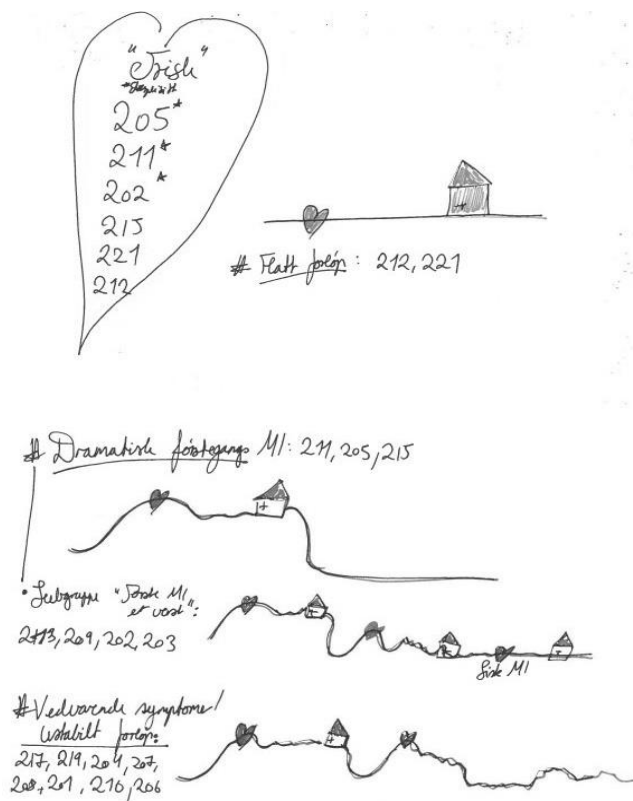 "Frisk"
205*
211*
202*
215
221
212
# Flatt forløp: 212, 221
# Dramatisk førstegangs MI: 211, 205, 215
• Subgruppe "Første MI
verst":
209, 202, 203
Siste MI
# Vedvarende symptomer/
Ustabilt forløp:
217, 219, 204, 207,
208, 201, 210, 206